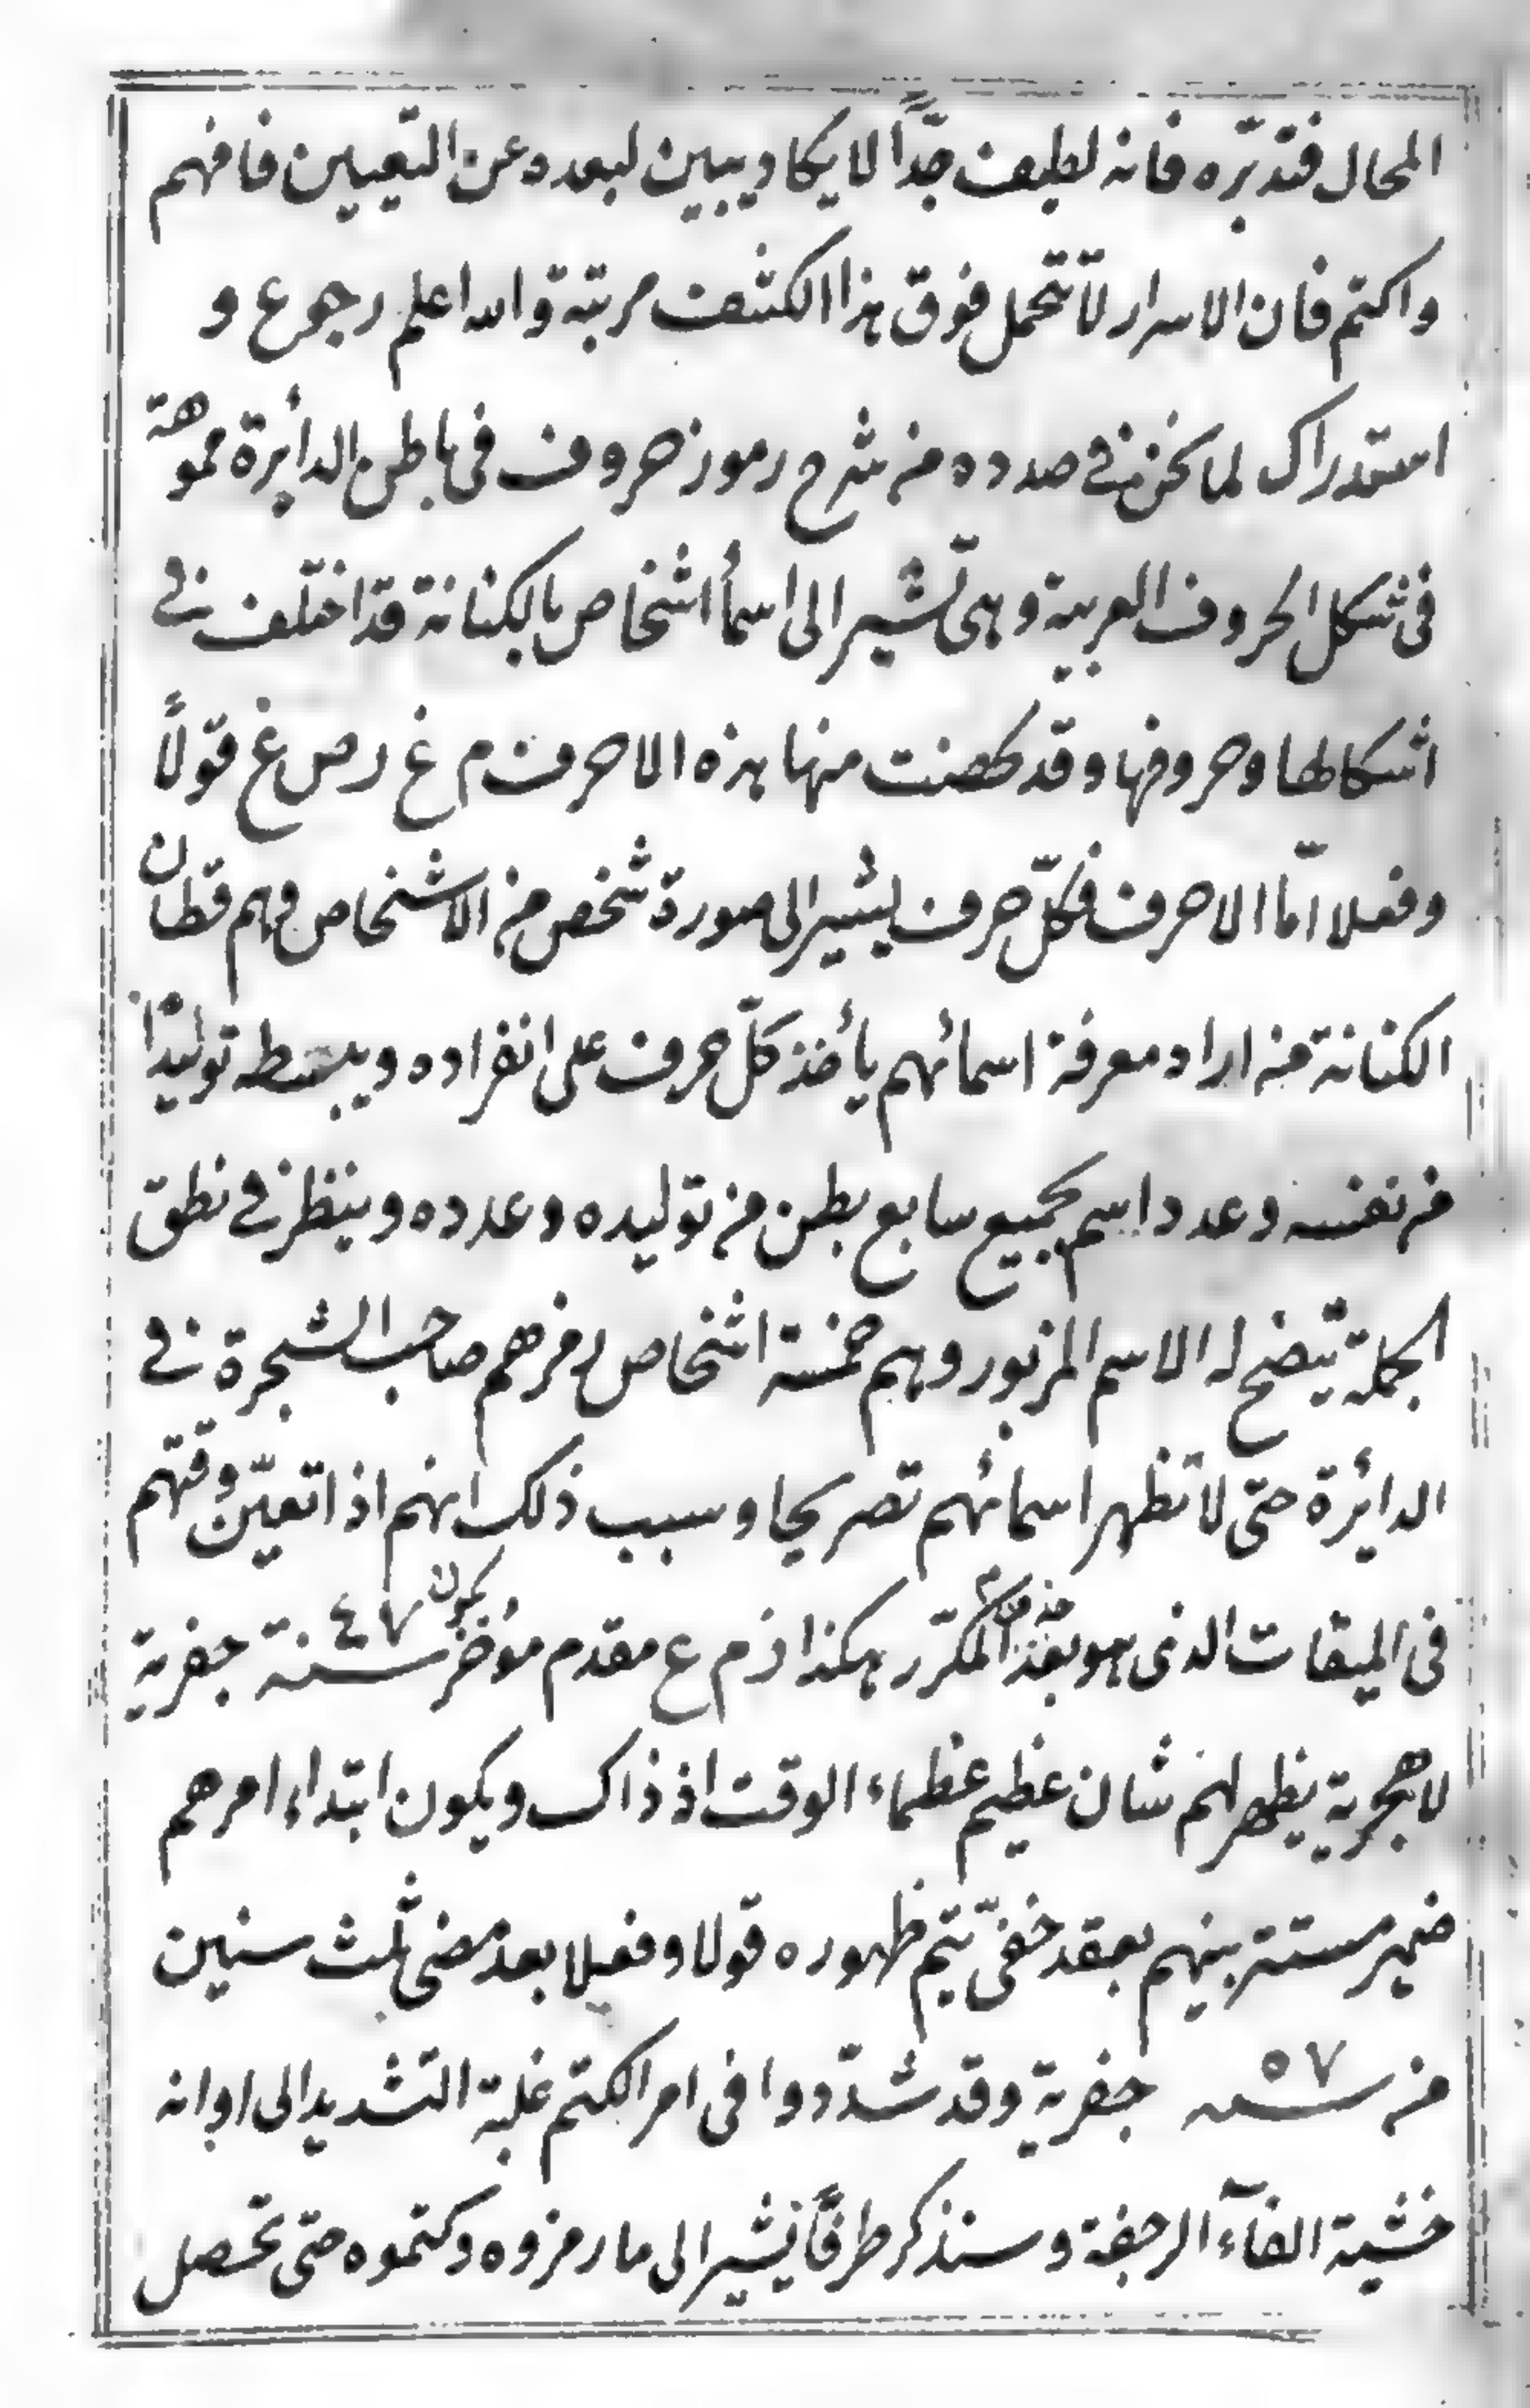 المحال فتدبّره فانه لطيف جدّاً لا يكاد يبين لبعده عن التعيين فافهم
واكتم فان الاسرار لا تتحمل فوق هذا الكشف مرتبة والله اعلم رجوع و
استدراك لما نحن في صدده من شرح رموز حروف في باطن الدائرة مموهة
في شكل الحروف العربية وهي تشير الى اسمأ اشخاص بالكنانة قد اختلف في
اشكالها وحروفها وقد منها هذه الاحرف م غ ر ص غ قولاً
وفعلا امّا الاحرف فكلّ حرف يشير الى صورة شخص من الاشخاص وهم قطان
الكنانة فمن اراد معرفة اسمائهم يأخذ كلّ حرف على انفراده ويبسطه توليدًا
من نفسه وعدد اسم بجميع سابع بطن من توليده وعدده وينظر في نطق
الجملة يتّضح له الاسم المزبور وهم خمسة اشخاص رمزهم صاحب الشجرة في
الدائرة حتى لا تظهر اسمائهم تصريحا وسبب ذلك انهم اذا تعيّن وقتهم
في الميقات الذى هو بعد المكرّر هكذا ذ م ع مقدم مؤخر يكون سنة ٤٧ جفرية
لا هجرية يظهر لهم شان عظيم عظماء الوقت اذ ذاك ويكون ابتداء امرهم
ضمير مستتر بينهم بعقد خفىّ يتم ظهوره قولا وفعلا بعد مضى ثلث سنين
من سنه ٥٧ جفرية وقد شدّدوا في امر الكتم غلبة التشديد الى اوانه
خشية الفآء الرجفة وسنذكر طرفًا يشير الى ما رمزوه وكتموه حتى تحصل